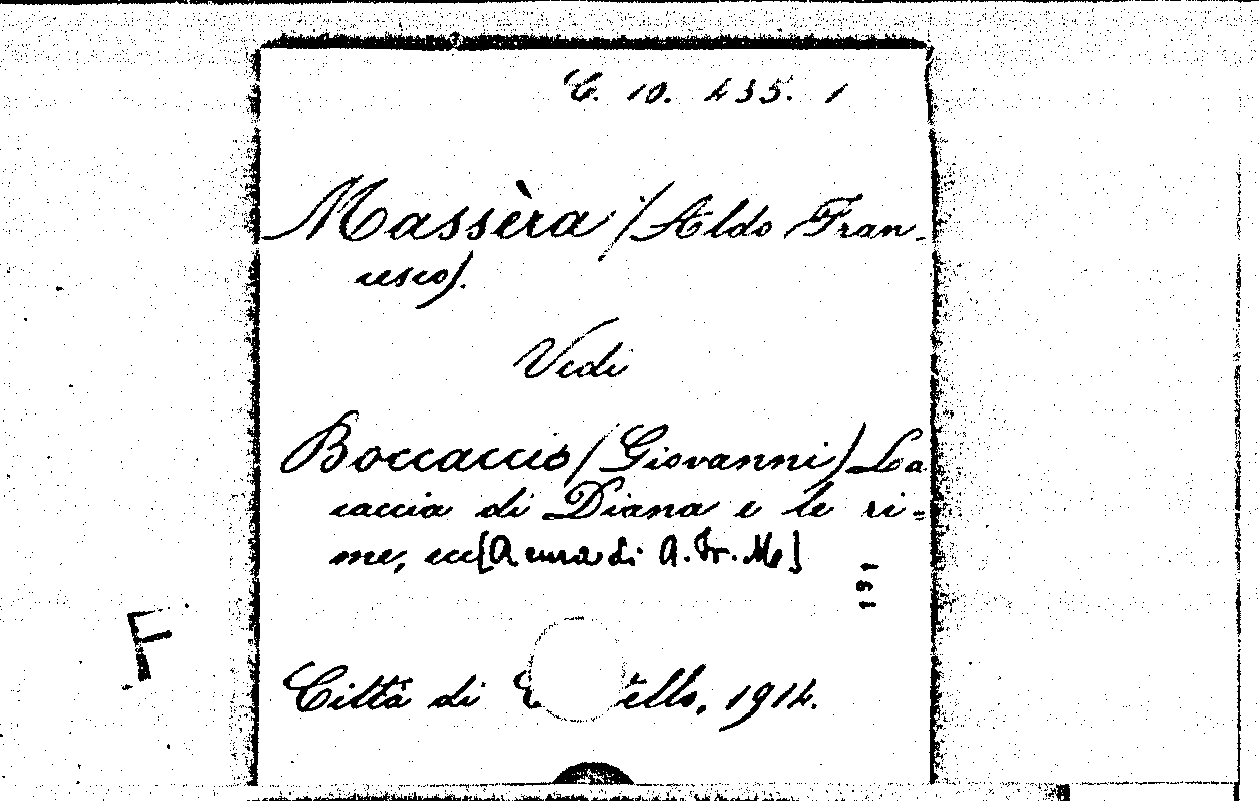 C. 10. 435. 1
Massèra (Aldo Fran-
cesco).
Vedi
Boccaccio (Giovanni) La
caccia di Diana e le ri=
me, ecc [A cura di A. Fr. M.]
191
Città di C ello, 1914.
F